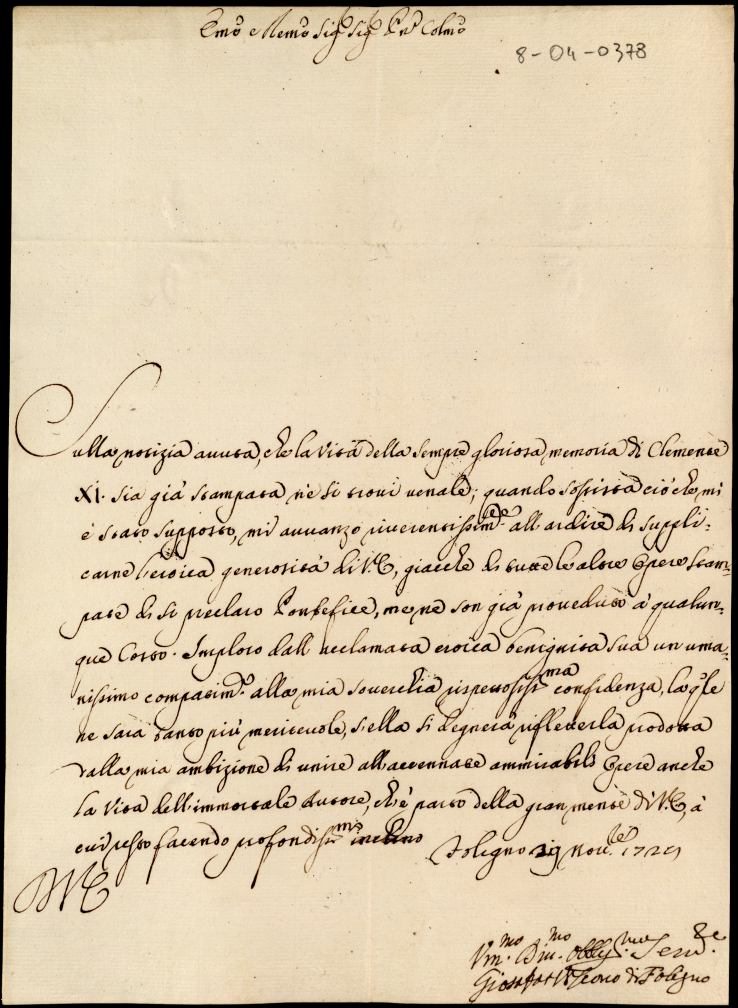 Emo e Rmo Sigr Sigr Pne Colmo
8-04-0378
Sulla notizia avuta, che la Vita della sempre gloriosa memoria di Clemente
XI. sia già stampata nè si trovi venale; quando sossista ciò che mi
è stato supposto, mi avvanzo riverentissime. all'ardire di suppli-
carne l'eroica generosità di V.E., giacche di tutte le altre Opere stam-
pate di sì preclaro Pontefice, me ne son già proveduto à qualun-
que Costo. Imploro dall'acclamata eroica benignità sua un uma-
nissimo compatimo. alla mia soverchia rispettosissma confidenza, la qle
ne sarà tanto più meritevole, s'ella si degnerà rifletterla prodotta
dalla mia ambizione di unire all'accennate ammirabili Opere anche
la Vita dell'immortale Autore, ch'è parto della gran mente di V.E., à
cui resto facendo profondissmo inchino
Foligno 29 Novre. 1729
D V E
Vmo. Divmo. Obbligmo Servre.
Giosafat Vescovo di Foligno